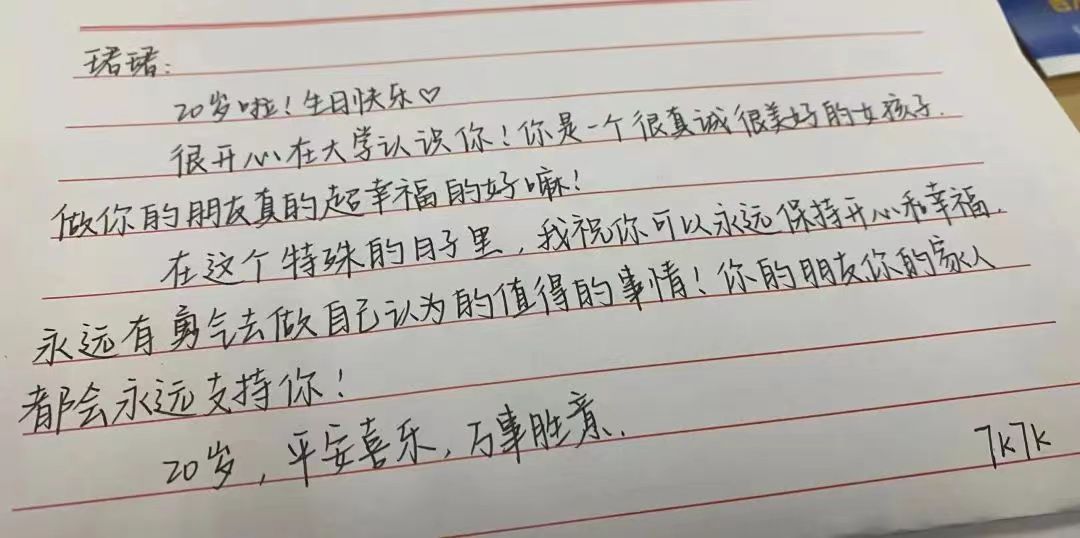 珺珺：
20岁啦！生日快乐♡
很开心在大学认识你！你是一个很真诚很美好的女孩子.
做你的朋友真的超幸福的好嘛！
在这个特殊的日子里，我祝你可以永远保持开心和幸福.
永远有勇气去做自己认为的值得的事情！你的朋友你的家人
都会永远支持你！
20岁，平安喜乐，万事胜意.
7k7k